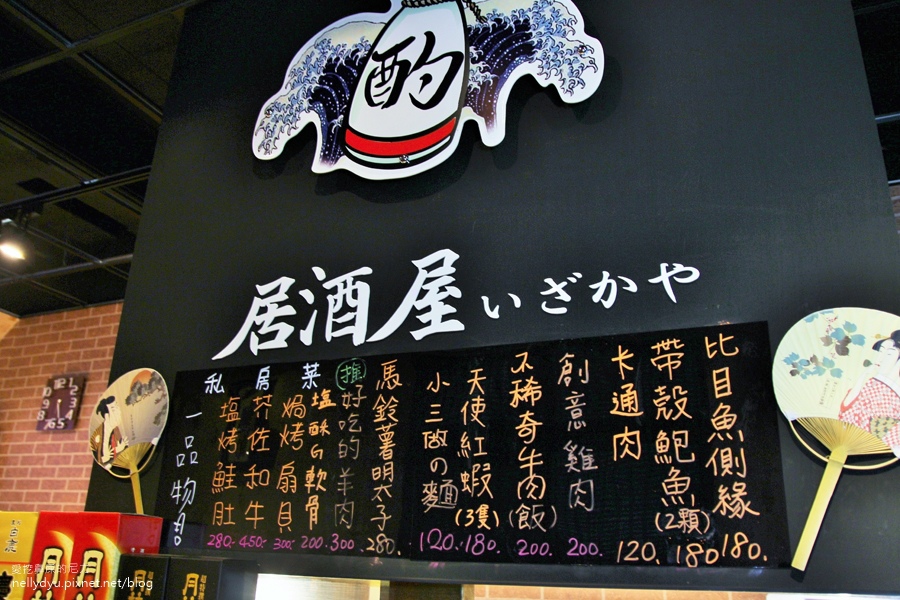 酌
居酒屋 いざかや
比目魚側緣 180.
帶殼鮑魚(2顆) 180
卡通肉 120.
創意雞肉 200.
不稀奇牛肉(飯) 200.
天使紅蝦(3隻) 180.
小三改の麵 120.
馬鈴薯明太子 280.
推 好吃的羊肉 300
塩酥の軟骨 200.
焗烤扇貝 300.
芥佐和牛 450.
塩烤鮭肚 280.
私房菜
一品物
月桂
月桂
hellydyu.pixnet.net/blog